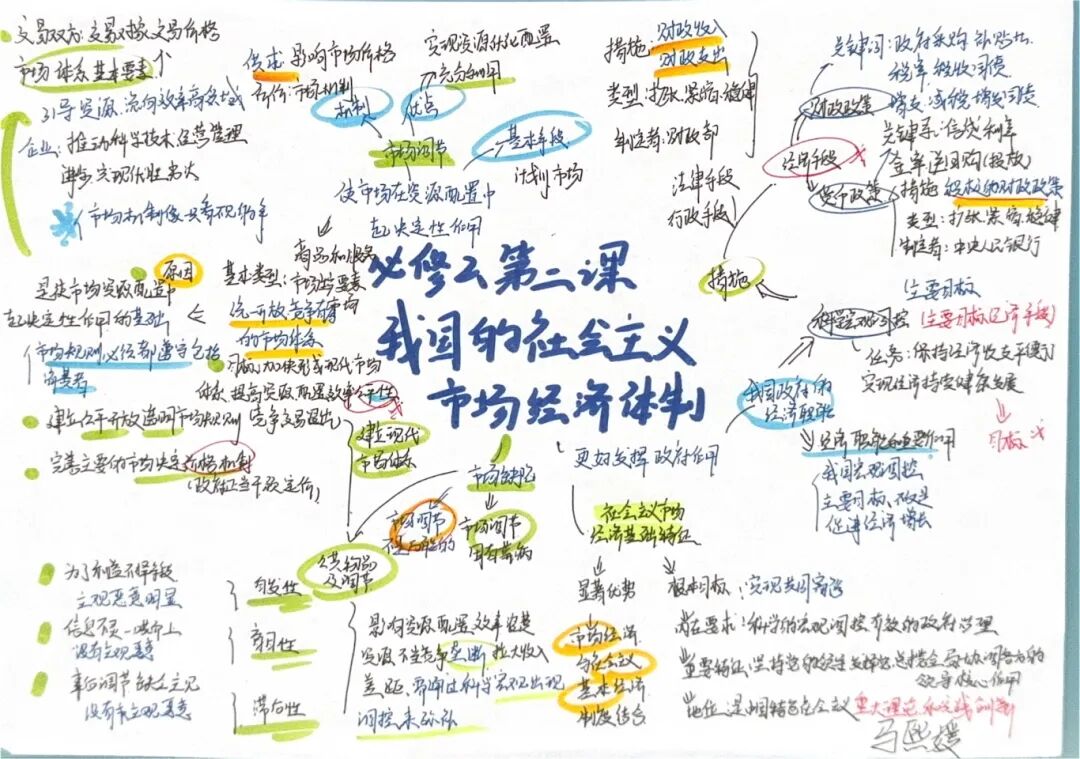 交易双方、交易对象、交易价格
市场体系基本要素
引导资源流向效率高领域
企业:推动科学技术、经营管理
进步,实现优胜劣汰
市场机制像只看不见的手
供求影响市场价格
市场机制
机制
优点
实现资源优化配置
充分利用
市场调节
基本手段
计划 市场
使市场在资源配置中
起决定性作用
措施:财政收入
财政支出
类型:扩张、紧缩、稳健
制定者:财政部
法律手段
行政手段
经济手段
财政政策
货币政策
关键词:政府采购 补贴
税率 税收 国债
增支、减税、增发国债
关键系:信贷 利率
类型:扩张、紧缩、稳健
制定者:中央人民银行
措施
科学宏观调控
主要目标
(主要目标经济手段)
任务:保持经济收支平衡
实现经济持续健康发展
目标
必修二第二课
我国的社会主义
市场经济体制
商品和服务
基本类型:市场与要素市场
原因
是使市场资源配置中
起决定性作用的基础
统一开放竞争有序
的市场体系
目标:加快形成现代市场
体系,提高资源配置效率公平性
市场规则
建立公平开放透明市场规则
竞争交易退出
完善主要由市场决定价格机制
(政府不当干预定价)
建立现代
市场体系
市场缺陷
市场调节
不是万能的
市场调节
固有弊病
公共物品
及调节
更好发挥政府作用
我国政府的
经济职能
经济职能的重要作用
我国宏观调控
主要目标
促进经济增长
社会主义市场
经济基础特征
显著优势
根本目标:实现共同富裕
市场经济
与社会主义
基本经济
制度结合
内在要求:科学的宏观调控 有效的政府治理
重要特征:坚持党的领导
领导核心作用
地位:是中国特色社会主义重大理论和实践创新
为了利益不择手段
主观恶意明显
自发性
信息不灵一哄而上
没有主观恶意
盲目性
事后调节
没有主观恶意
滞后性
影响资源配置效率
资源 不当竞争 垄断 拉大收入
差距,需通过科学宏观
调控来弥补
马熙媛